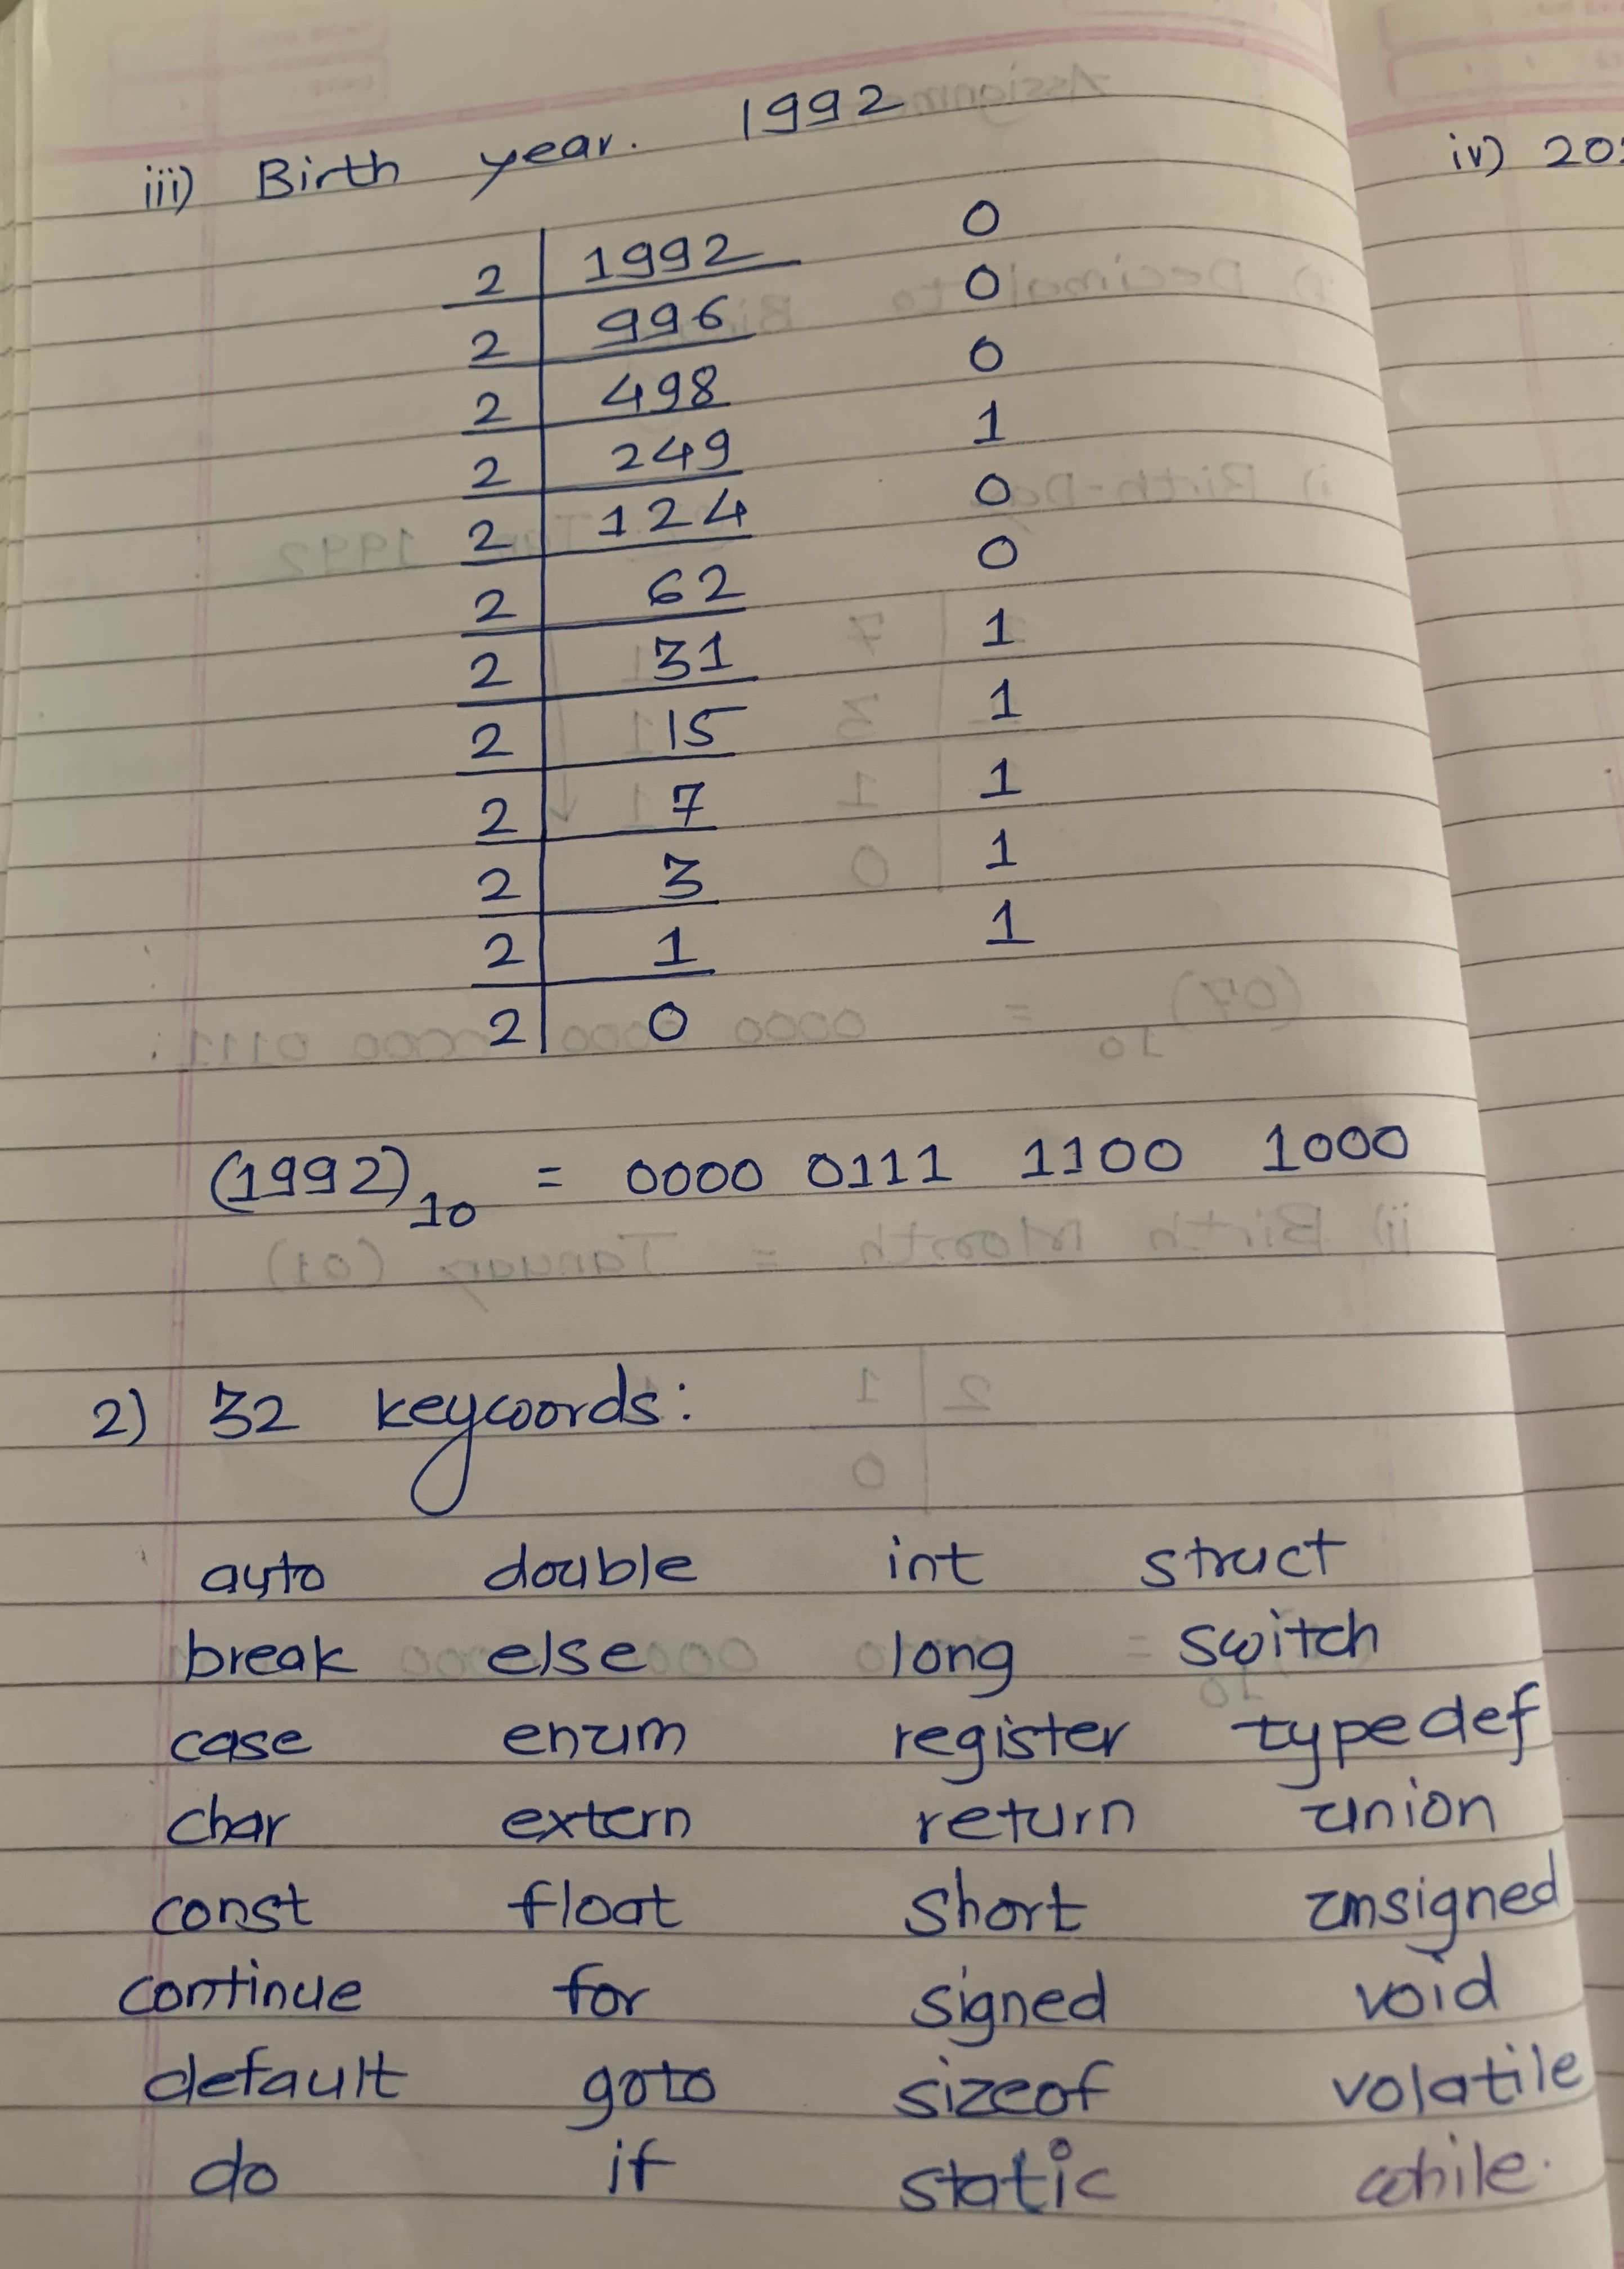 iii) Birth year. 1992
iv) 20
2 | 1992 0
2 | 996 0
2 | 498 0
2 | 249 1
2 | 124 0
2 | 62 0
2 | 31 1
2 | 15 1
2 | 7 1
2 | 3 1
2 | 1 1
2 | 0
(1992)10 = 0000 0111 1100 1000
2) 32 keywords:
auto double int struct
break else long switch
case enum register typedef
char extern return union
const float short unsigned
continue for signed void
default goto sizeof volatile
do if static while.